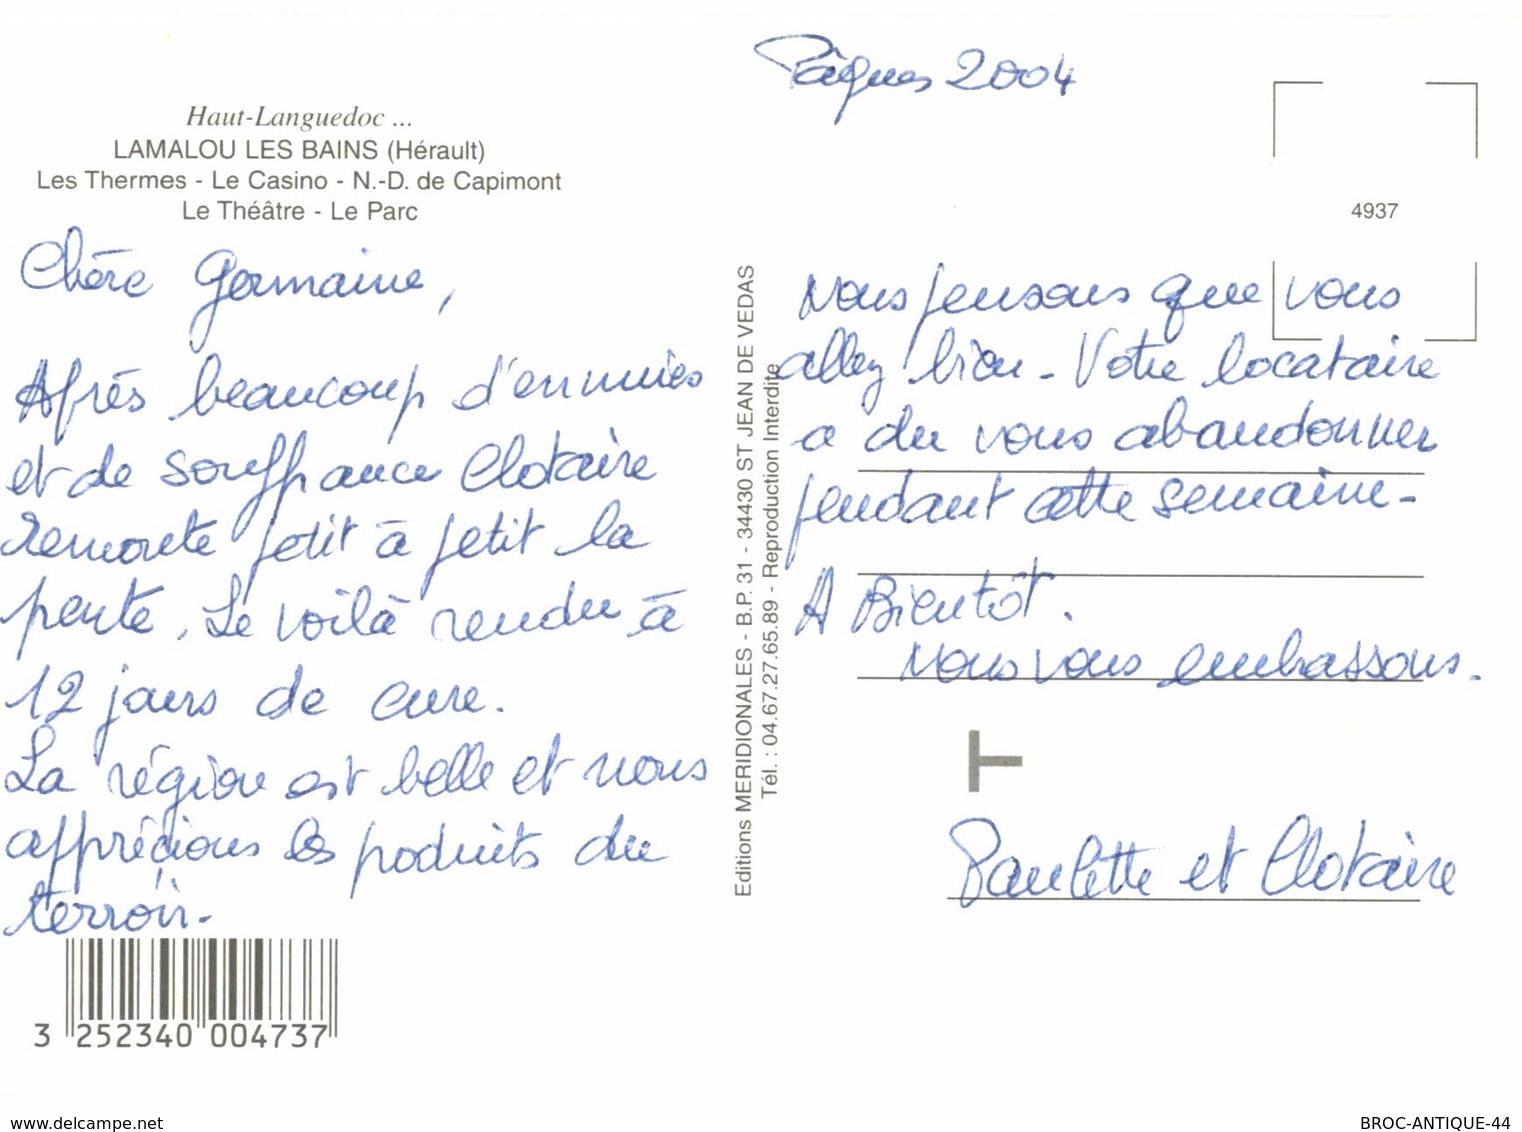 Haut-Languedoc ...
LAMALOU LES BAINS (Hérault)
Les Thermes - Le Casino - N.-D. de Capimont
Le Théâtre - Le Parc
Chère Germaine,
Après beaucoup d'ennuies
et de souffrance Clotaire
remonte petit à petit la
pente. Le voilà rendu à
12 jours de cure.
La région est belle et nous
apprécions les produits du
terroir.
3 252340 004737
Editions MERIDIONALES - B.P. 31 - 34430 ST JEAN DE VEDAS
Tél. : 04.67.27.65.89 - Reproduction Interdite
Pâques 2004
4937
Nous pensons que vous
allez bien - Votre locataire
a du vous abandonner
pendant cette semaine -
A Bientôt.
Nous vous embrassons.
T
Paulette et Clotaire
delcampe.net
BROC-ANTIQUE-44